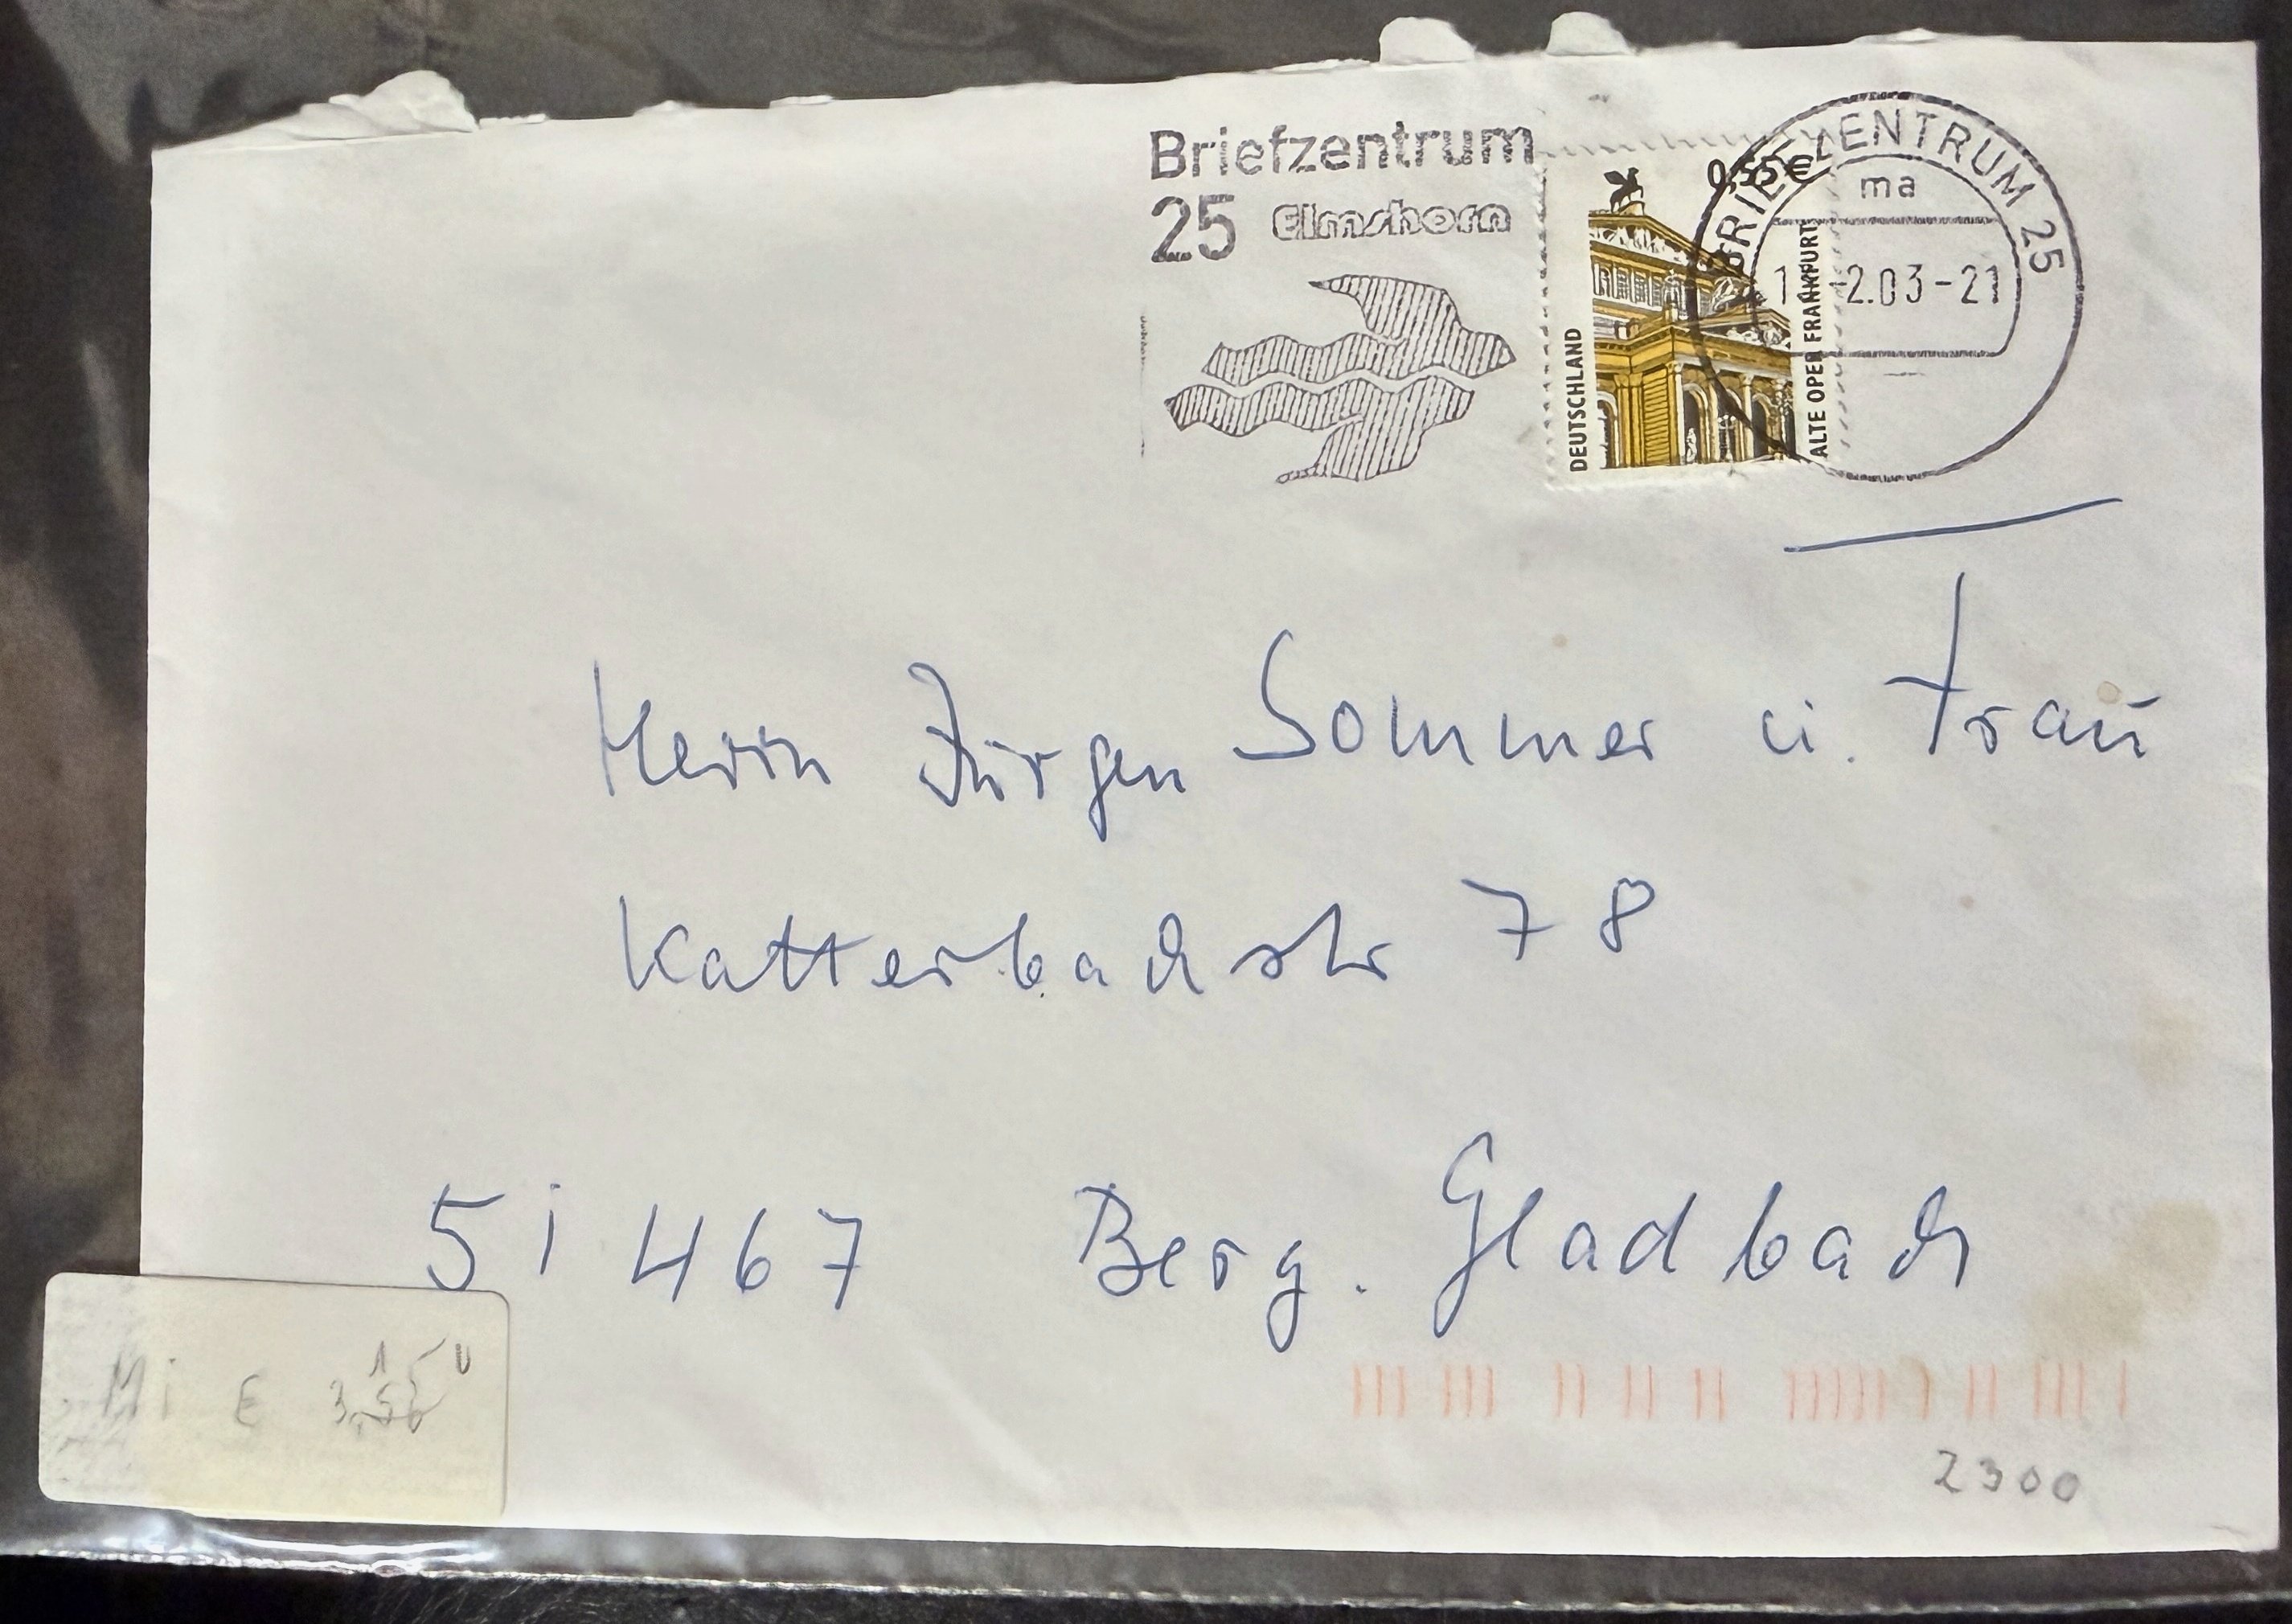 Briefzentrum
25 Elmshorn
0,55€
DEUTSCHLAND
ALTE OPER FRANKFURT
BRIEFZENTRUM 25
ma
-2.03-21
Herrn Jürgen Sommer u. Frau
Katterbachstr 78
51467 Berg. Gladbach
Mi €
2300